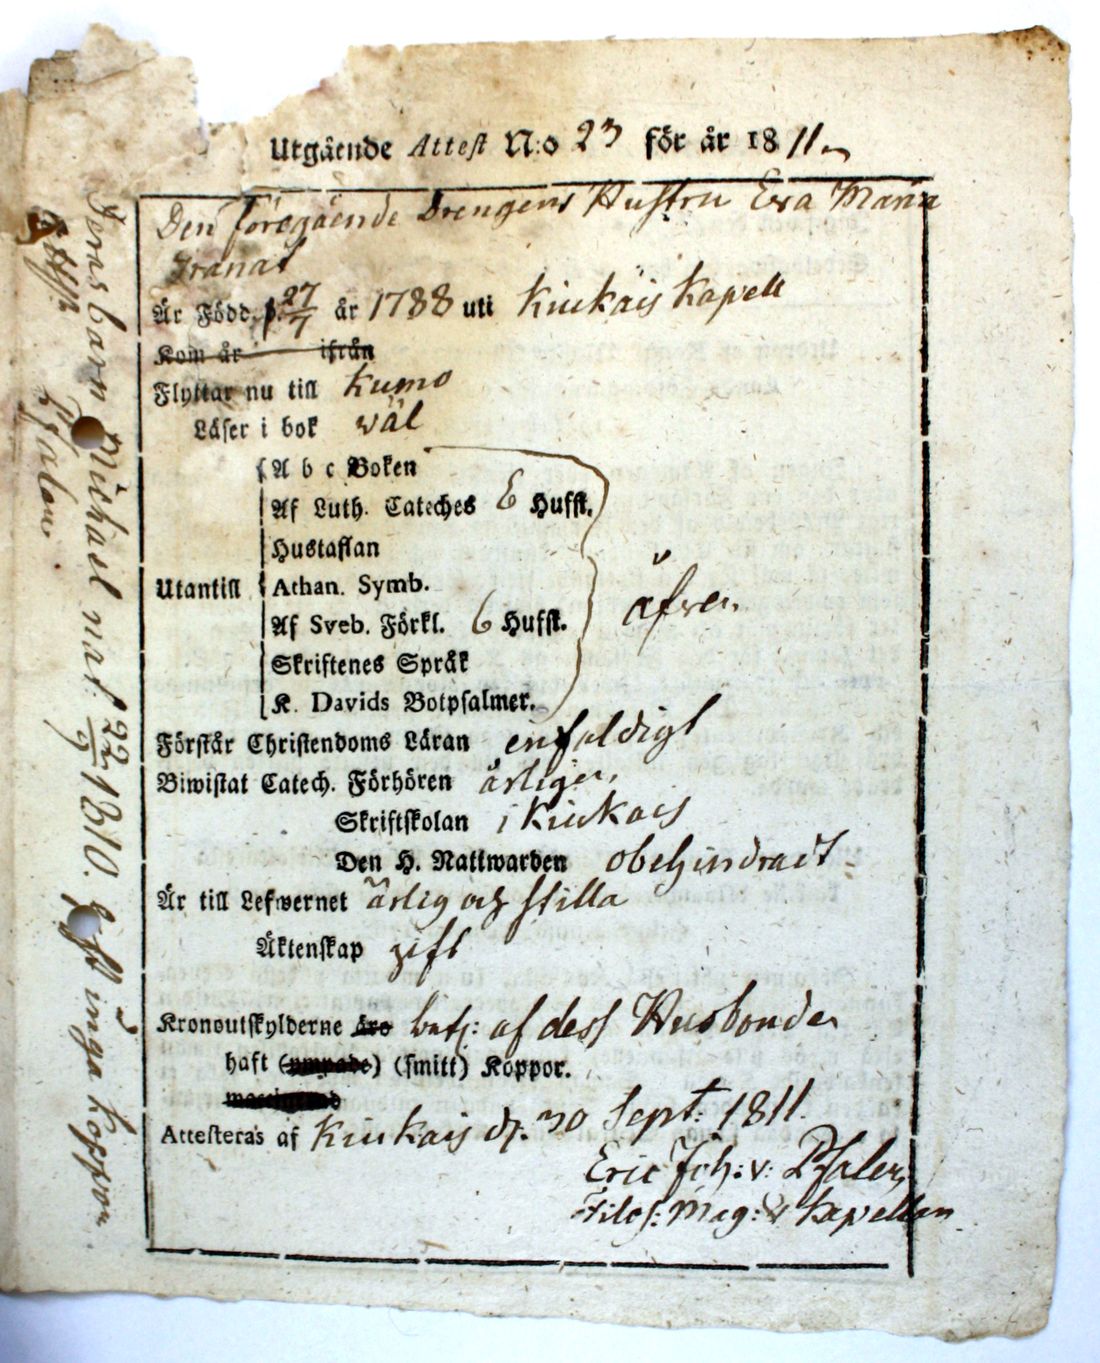 Utgående Attest N:o 23 för år 1811
Den föregående Drengens Hustru Eva Maria
Granat
Är Född. d. 27/7 år 1788 uti Kiukais Kapell
Kom år ifrån
Flyttar nu till Kumo
Läser i bok väl
Utantill
A b c Boken
Af Luth. Cateches 6 Hufst.
Hustaflan
Athan. Symb.
Af Sveb. Förkl. 6 Hufst.
Skriftenes Språk
K. Davids Botpsalmer.
äfven
Förstår Christendoms Läran enfaldigt
Biwistat Catech. Förhören årligen,
Skriftskolan i Kiukais
Den H. Nattwarden obehindradt
Är till Lefwernet ärlig och stilla
Äktenskap gift
Kronoutskylderne äro bet: af dess Husbonde
haft (ympade) (smitt) Koppor.
Attesteras af Kiukais d. 30 Sept: 1811.
Eric Joh: v: Pfaler,
Filos: Mag: & Kapellan
Deras barn Michael nat. 22/9 1810. haft inga koppor
Pfaler